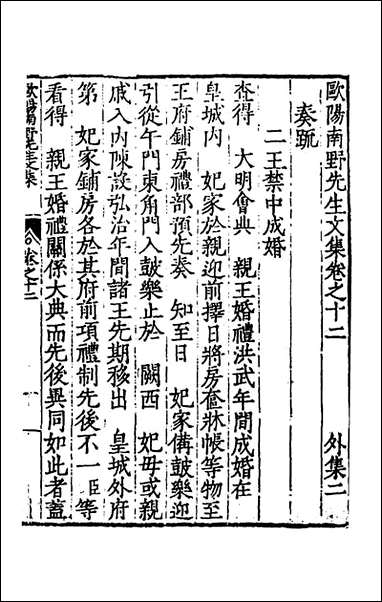 歐陽南野先生文集卷之十二 外集二
奏䟽
二王禁中成婚
查得 大明會典 親王婚禮洪武年間成婚在
皇城内 妃家於親迎前擇日將房奩牀帳等物至
王府鋪房禮部預先奏 知至日 妃家僃鼓樂迎
引從午門東角門入鼓樂止於 闕西 妃母或親
戚入内陳設弘治年間諸王先期移出 皇城外府
第 妃家鋪房各於其府前項禮制先後不一臣等
看得 親王婚禮關係大典而先後異同如此者蓋
歐陽南野先生文集 卷之十二 一